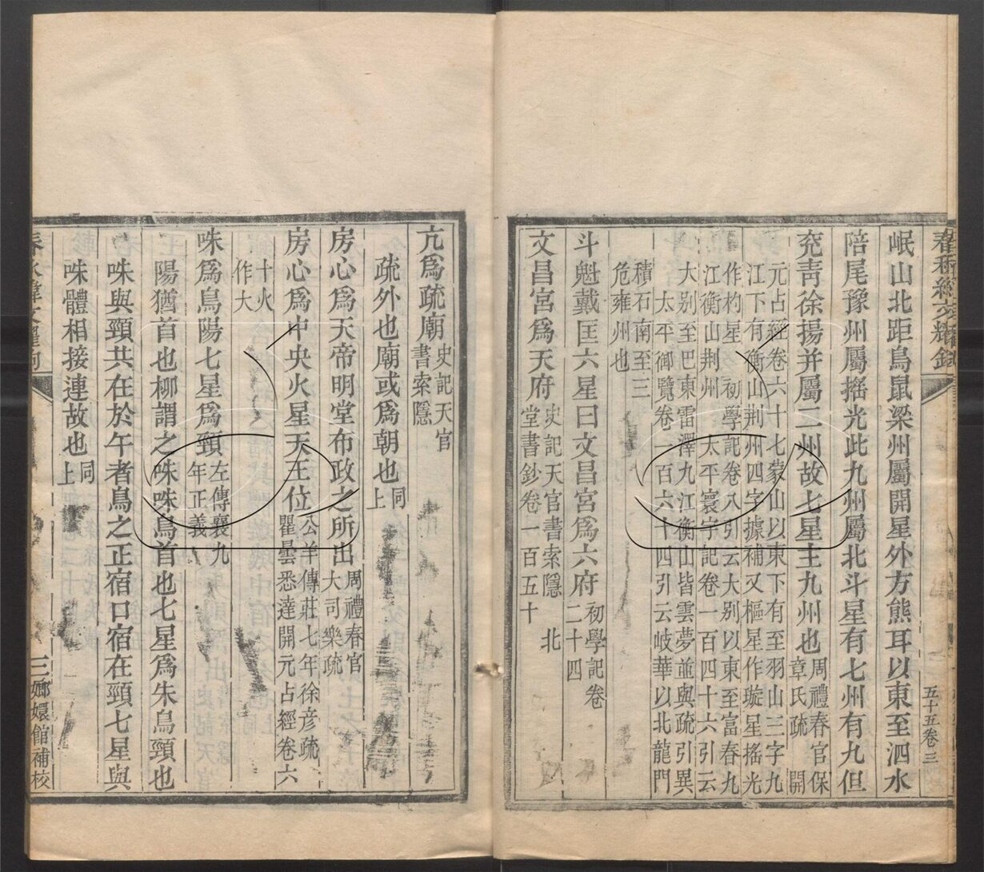 岷山北距鳥鼠梁州屬開星外方熊耳以東至泗水
陪尾豫州屬搖光此九州屬北斗星有七州有九但
兖靑徐揚并屬二州故七星主九州也周禮春官保章氏疏 開
元占經卷六十七蒙山以東下有至羽山三字九
江下有衡山荆州四字據補又樞星作璇星搖光
作杓星 初學記卷八引云大別以東至富春九
江衡山荆州 太平寰宇記卷一百四十六引云
大別至巴東雷澤九江衡山皆雲夢並與疏引異
太平御覽卷一百六十四引云岐華以北龍門
積石南至三
危雍州也
斗魁戴匡六星曰文昌宮爲六府初學記卷二十四
文昌宮爲天府史記天官書索隱 北堂書鈔卷一百五十
五十五卷三
亢爲疏廟史記天官書索隱
疏外也廟或爲朝也同上
房心爲天帝明堂布政之所出周禮春官大司樂疏
房心爲中央火星天王位公羊傳莊七年徐彥疏 瞿曇悉達開元占經卷六
十火
作大
咮爲鳥陽七星爲頸左傳襄九年正義
陽猶首也柳謂之咮咮鳥首也七星爲朱鳥頸也
咮與頸共在於午者鳥之正宿口宿在頸七星與
咮體相接連故也同上
三
嫏嬛館補校